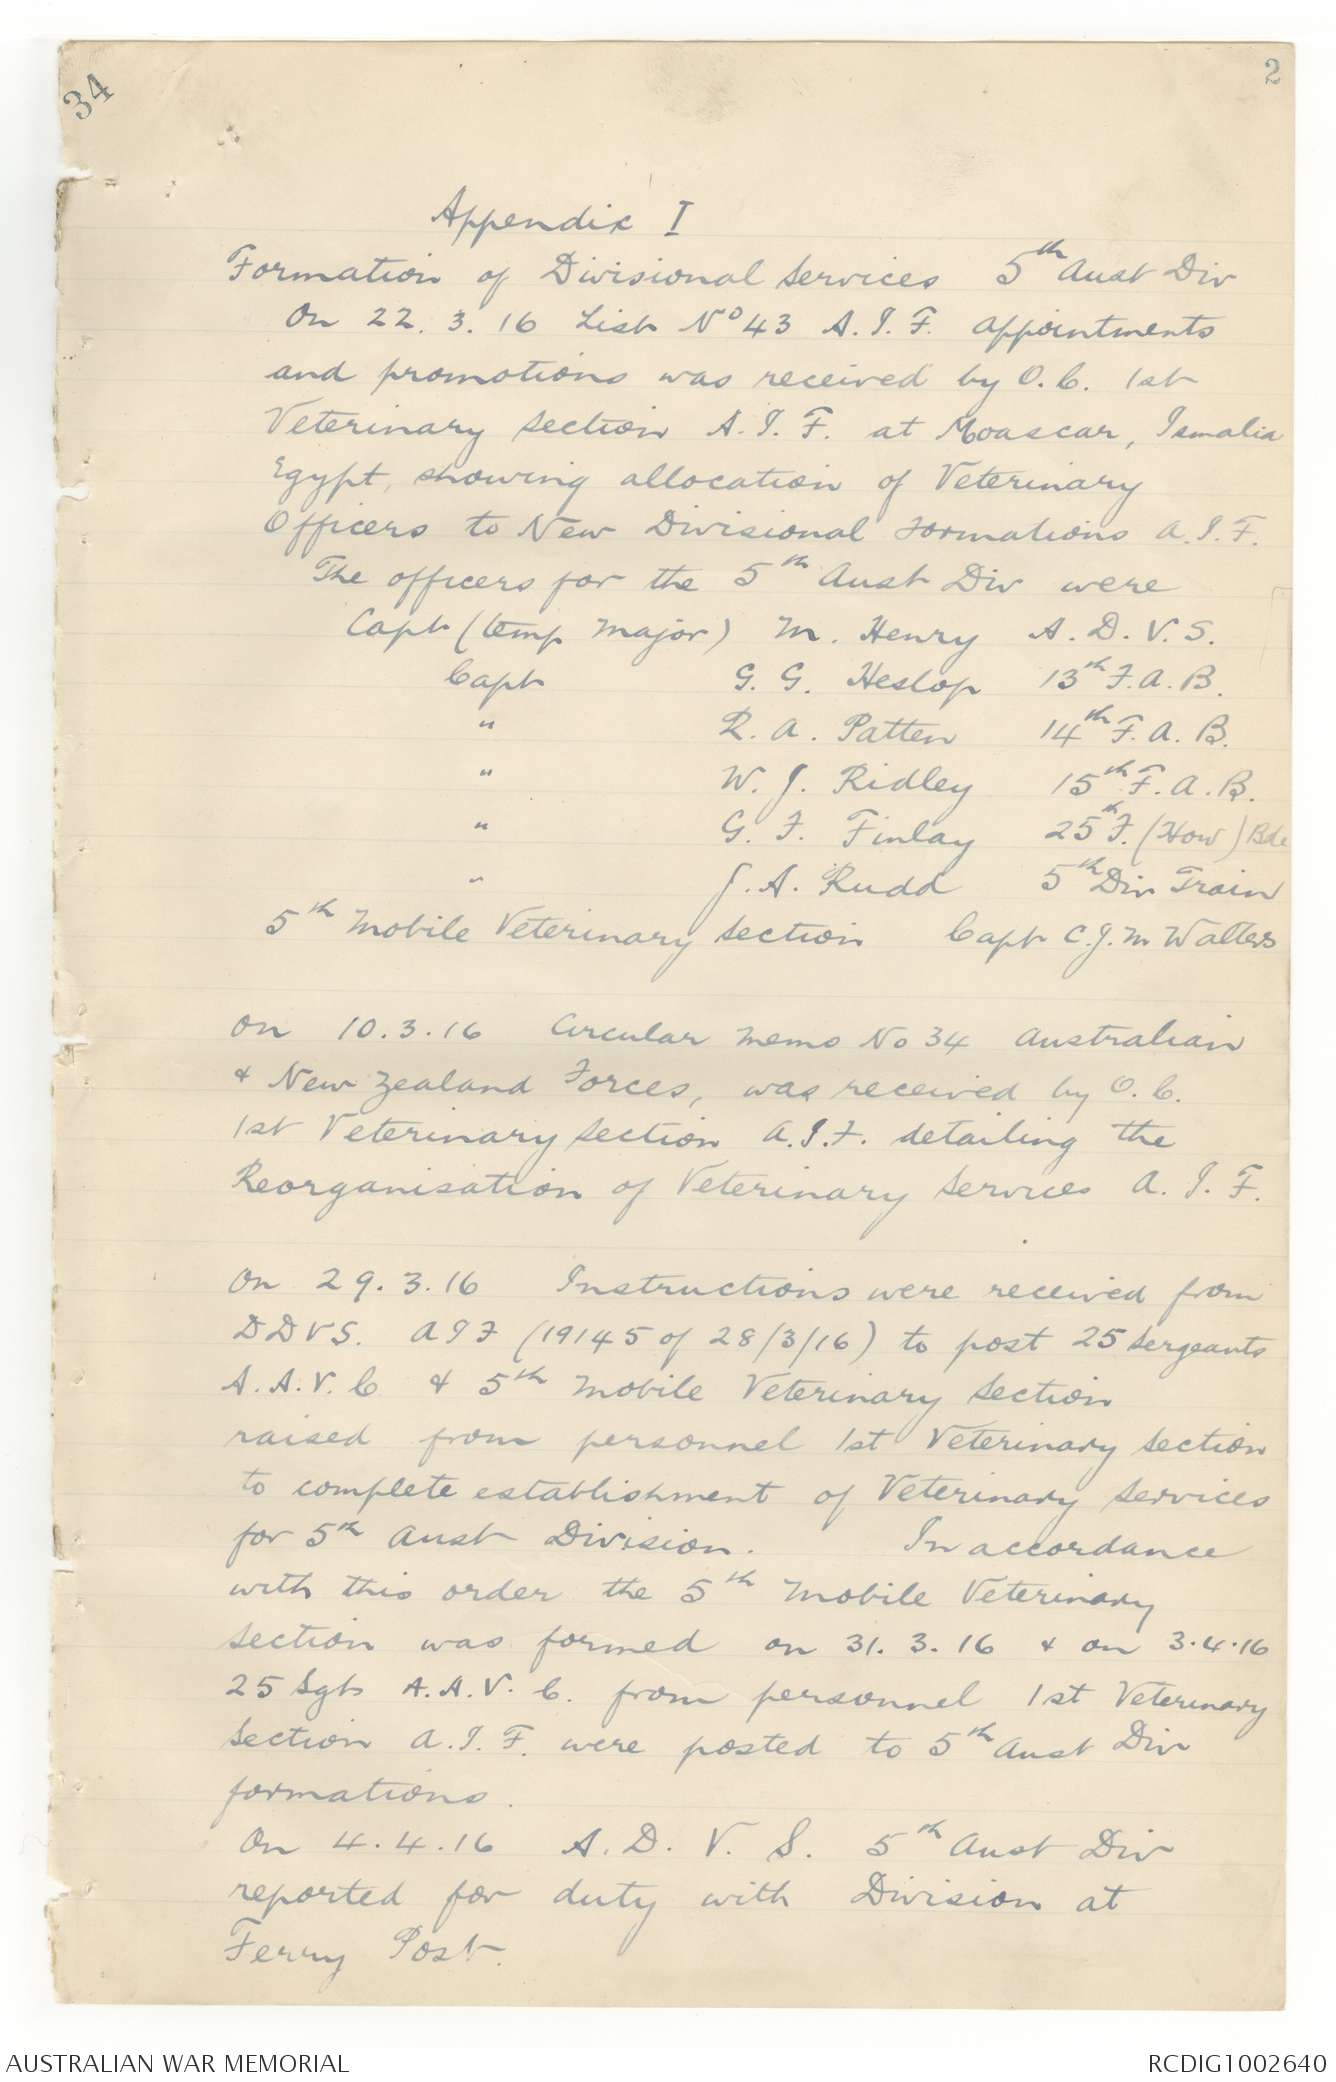 34
2
Appendix I
Formation of Divisional Services 5th Aust Div
On 22.3.16 List No 43 A.I.F. appointments
and promotions was received by O.C. 1st
Veterinary Section A.I.F. at Moascar, Ismalia
Egypt, showing allocation of Veterinary
Officers to New Divisional Formations A.I.F.
The officers for the 5th Aust Div were
Capt (temp Major) M. Henry A.D.V.S.
Capt G. G. Heslop 13th F.A.B.
" R. A. Patten 14th F.A.B.
" W. J. Ridley 15th F.A.B.
" G. F. Finlay 25th F. (How) Bde
" J. A. Rudd 5th Div Train
5th Mobile Veterinary Section Capt C.J.M Walters
On 10.3.16 Circular Memo No 34 Australian
& New Zealand Forces, was received by O.C.
1st Veterinary Section A.I.F. detailing the
Reorganisation of Veterinary Services A.I.F.
On 29.3.16 Instructions were received from
DDVS. AIF (19145 of 28/3/16) to post 25 Sergeants
A.A.V.C & 5th Mobile Veterinary Section
raised from personnel 1st Veterinary Section
to complete establishment of Veterinary Services
for 5th Aust Division. In accordance
with this order the 5th Mobile Veterinary
Section was formed on 31.3.16 & on 3.4.16
25 Sgts A.A.V.C. from personnel 1st Veterinary
Section A.I.F. were posted to 5th Aust Div
formations.
On 4.4.16 A.D.V.S. 5th Aust Div
reported for duty with Division at
Ferry Post.
AUSTRALIAN WAR MEMORIAL
RCDIG1002640